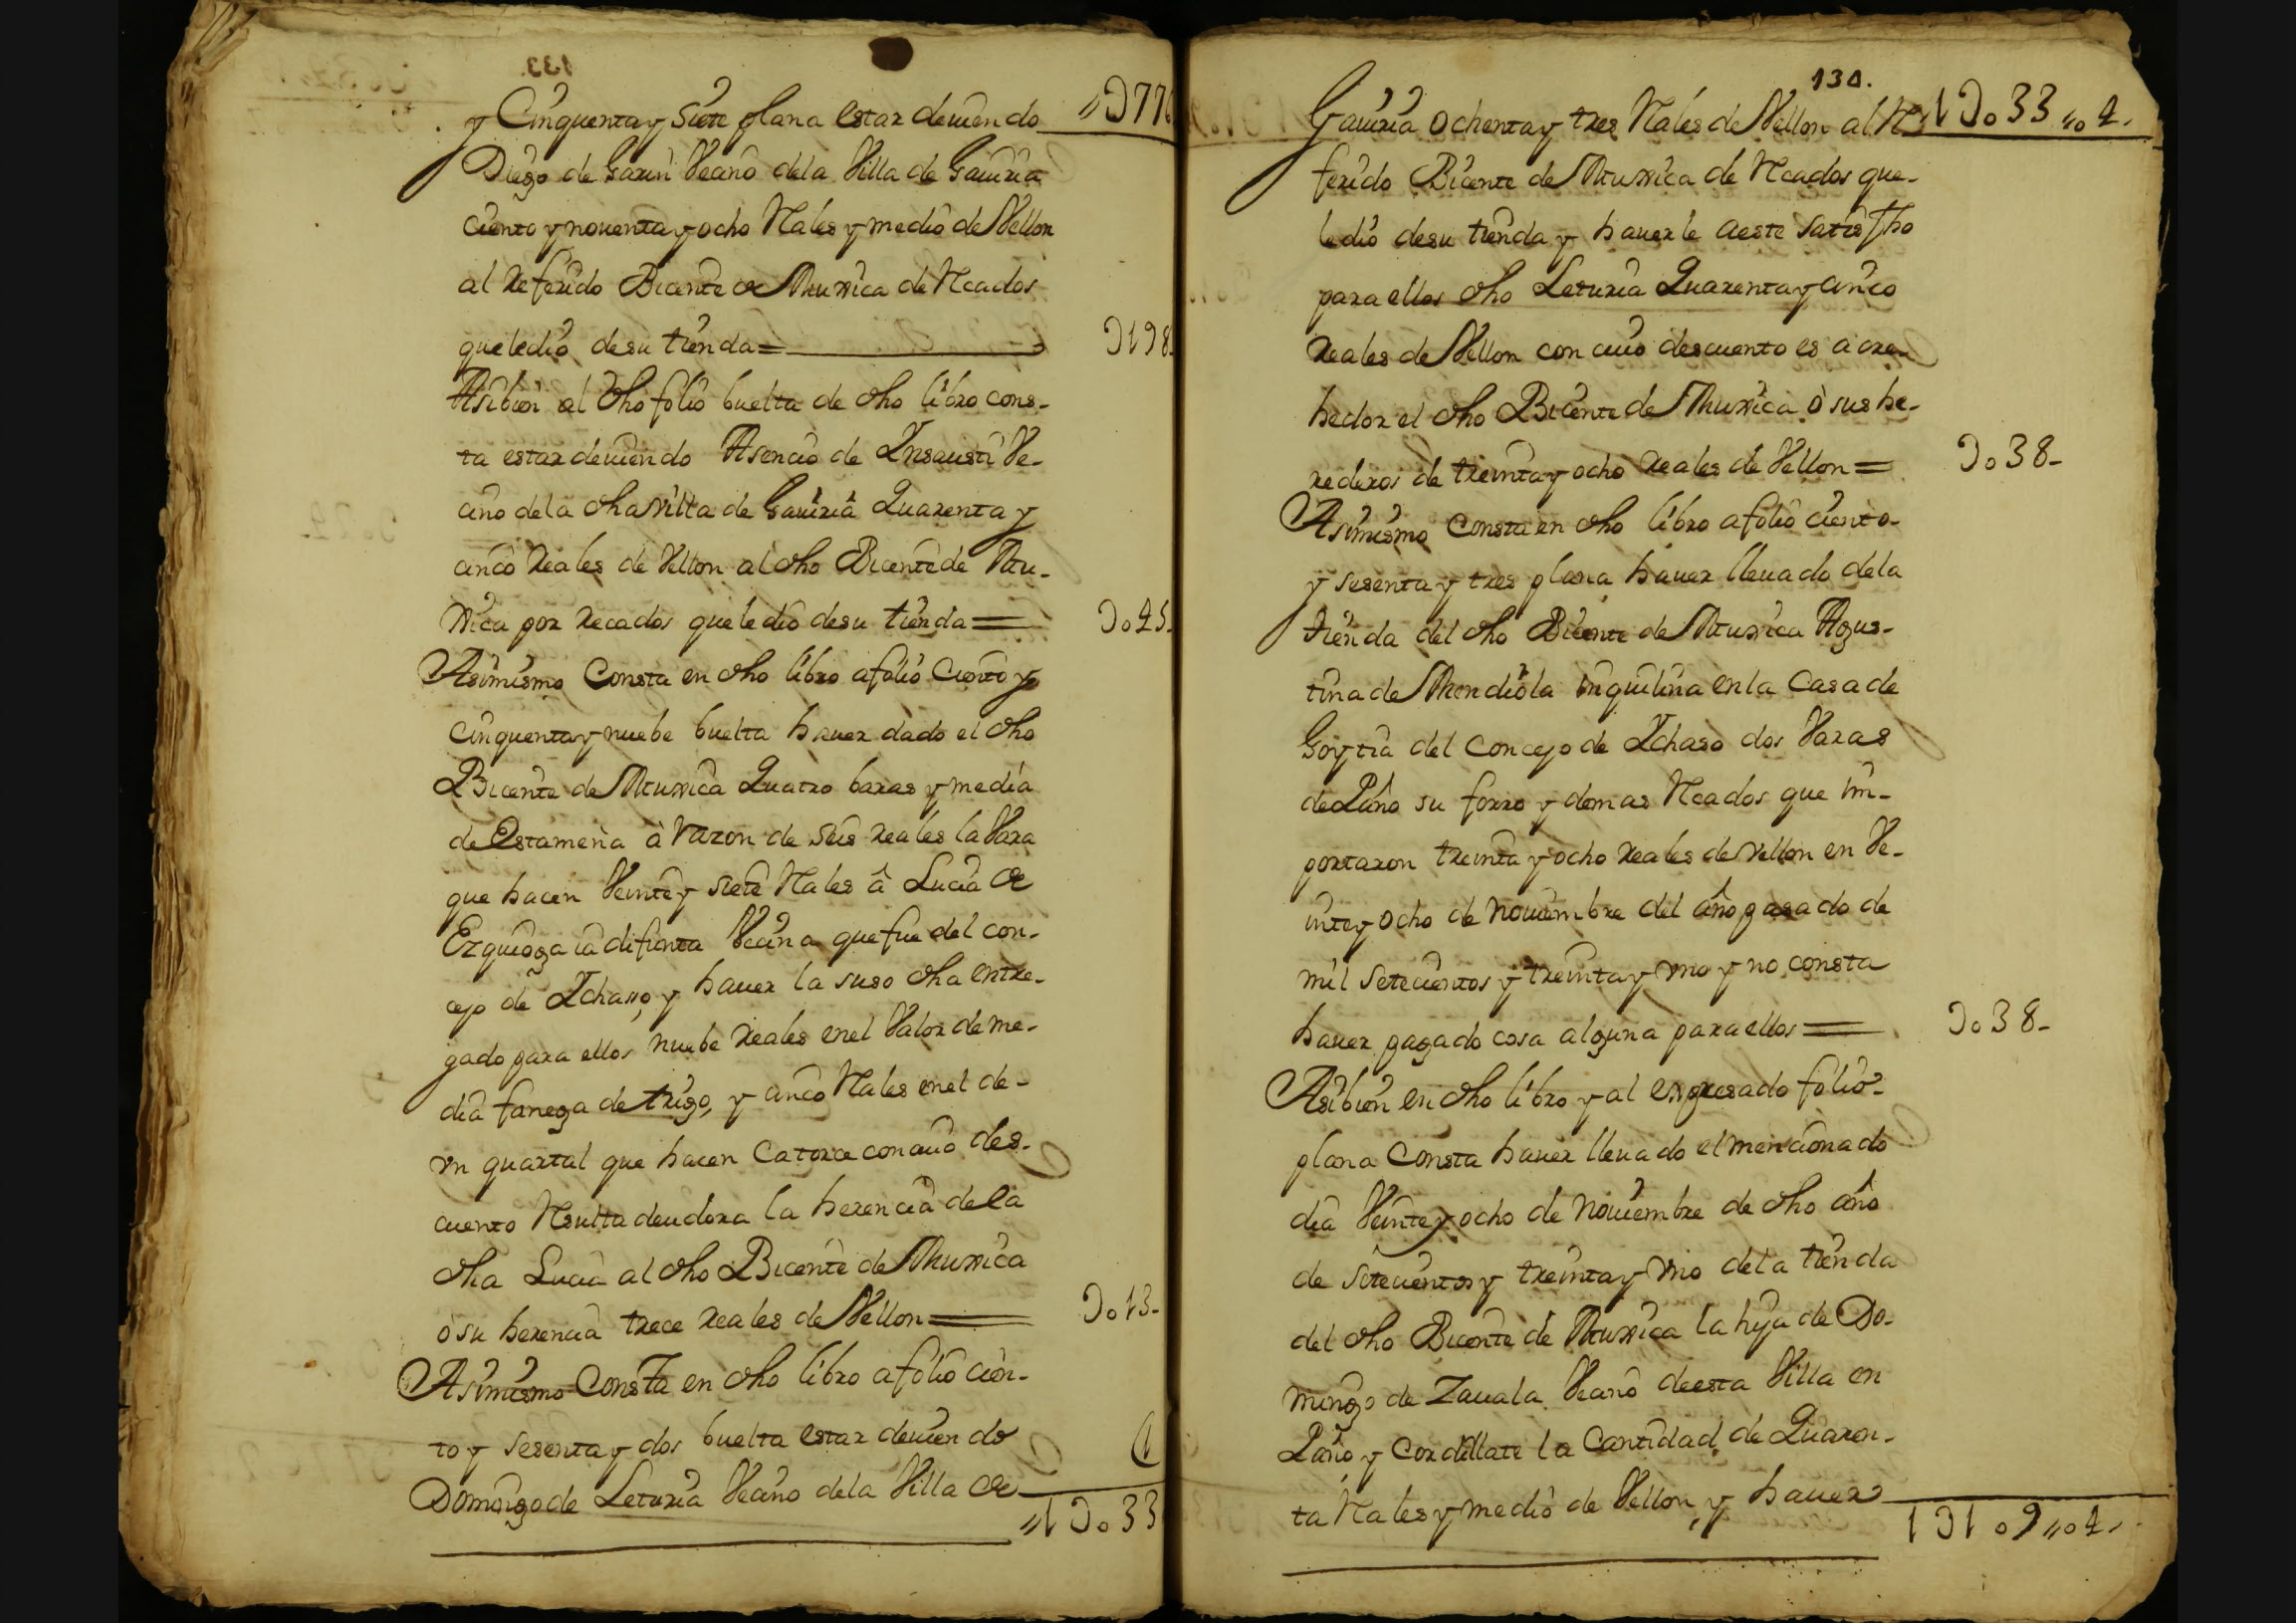 133.
y Cinquenta y Siete plana estar deuiendo
"U77
Diego de Garin Vecino dela Villa de Gauiria
ciento y nouenta y ocho Rales y medio de Vellon
al referido Bicente de Muxica de Rcados
que ledio desu tienda=
U198
Asibien al dho folio buelta de dho libro cons-
ta estar deuiendo Asencio de Insausti Ve-
cino dela dha villa de Gauiria Quarenta y
cinco Reales de Vellon al dho Bicente de Mu-
xica por recados que le dio desu tienda=
Uo45.
Asimismo Consta en dho libro afolio Ciento y
Cinquenta y nuebe buelta hauer dado el dho
Bicente de Muxica Quatro baras y media
de Estameña à razon de seis reales la Vara
que hacen Veinte y siete Rales â Lucia de
Ezquioga ia difunta Vecina que fue del con-
cejo de Ichasso, y hauer la suso dha entre-
gado para ellos nuebe reales enel Valor de me-
dia fanega de trigo, y cinco Rales enel de-
vn quartal que hacen Catorce con cuio des-
cuento Rsulta deudora la herencia dela
dha Lucia al dho Bicente de Muxica
ò su herencia trece reales de Vellon=
Uo13-
Asimismo Consta en dho libro afolio cien-
to y sesenta y dos buelta estar deuiendo
Domingo de Leturia Vecino dela Villa de
"1Uo33
130.
Gauiria ochenta y tres Rales de Vellon al R-
1Uo33"o4.
ferido Bicente de Muxica de Rcados que-
ledio desu tienda y hauerle aeste satisfho
para ellos dho Leturia Quarenta y cinco
reales de Vellon con cuio descuento es acre-
hedor el dho Bicente de Muxica ò sus he-
rederos de treinta y ocho reales de Vellon=
Uo38-
Asimismo Consta en dho libro afolio ciento-
y sesenta y tres plana hauer lleuado dela
tienda del dho Bicente de Muxica Agus-
tina de Mendiola inquilina en la Casa de
Goytia del Concejo de Ichaso dos Varas
de Paño su forro y demas Rcados que im-
portaron treinta y ocho reales de vellon en Ve-
inte y ocho de nouiembre del año pasado de
mil setecientos y treinta y vno y no consta
hauer pagado cosa alguna para ellos=
Uo38-
Asibien en dho libro y al expresado folio-
plana Consta hauer lleuado el mencionado
dia Veinte y ocho de nouiembre de dho año
de setecientos y treinta y vno dela tienda
del dho Bicente de Muxica la hija de Do-
mingo de Zauala Vecino deesta Villa en
Paño y Cordellate la Cantidad de Quaren-
ta Rales y medio de Vellon, y hauer
1U1o9"o4.